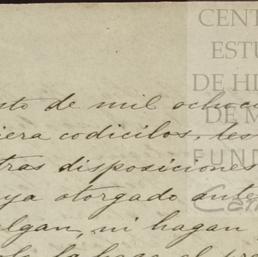 CENT
ESTU
DE HI
DE M
FUND
sto de mil ochoci
iera codicilos, tes
tras disposiciones
ya otorgado ante
lgan, ni hagan